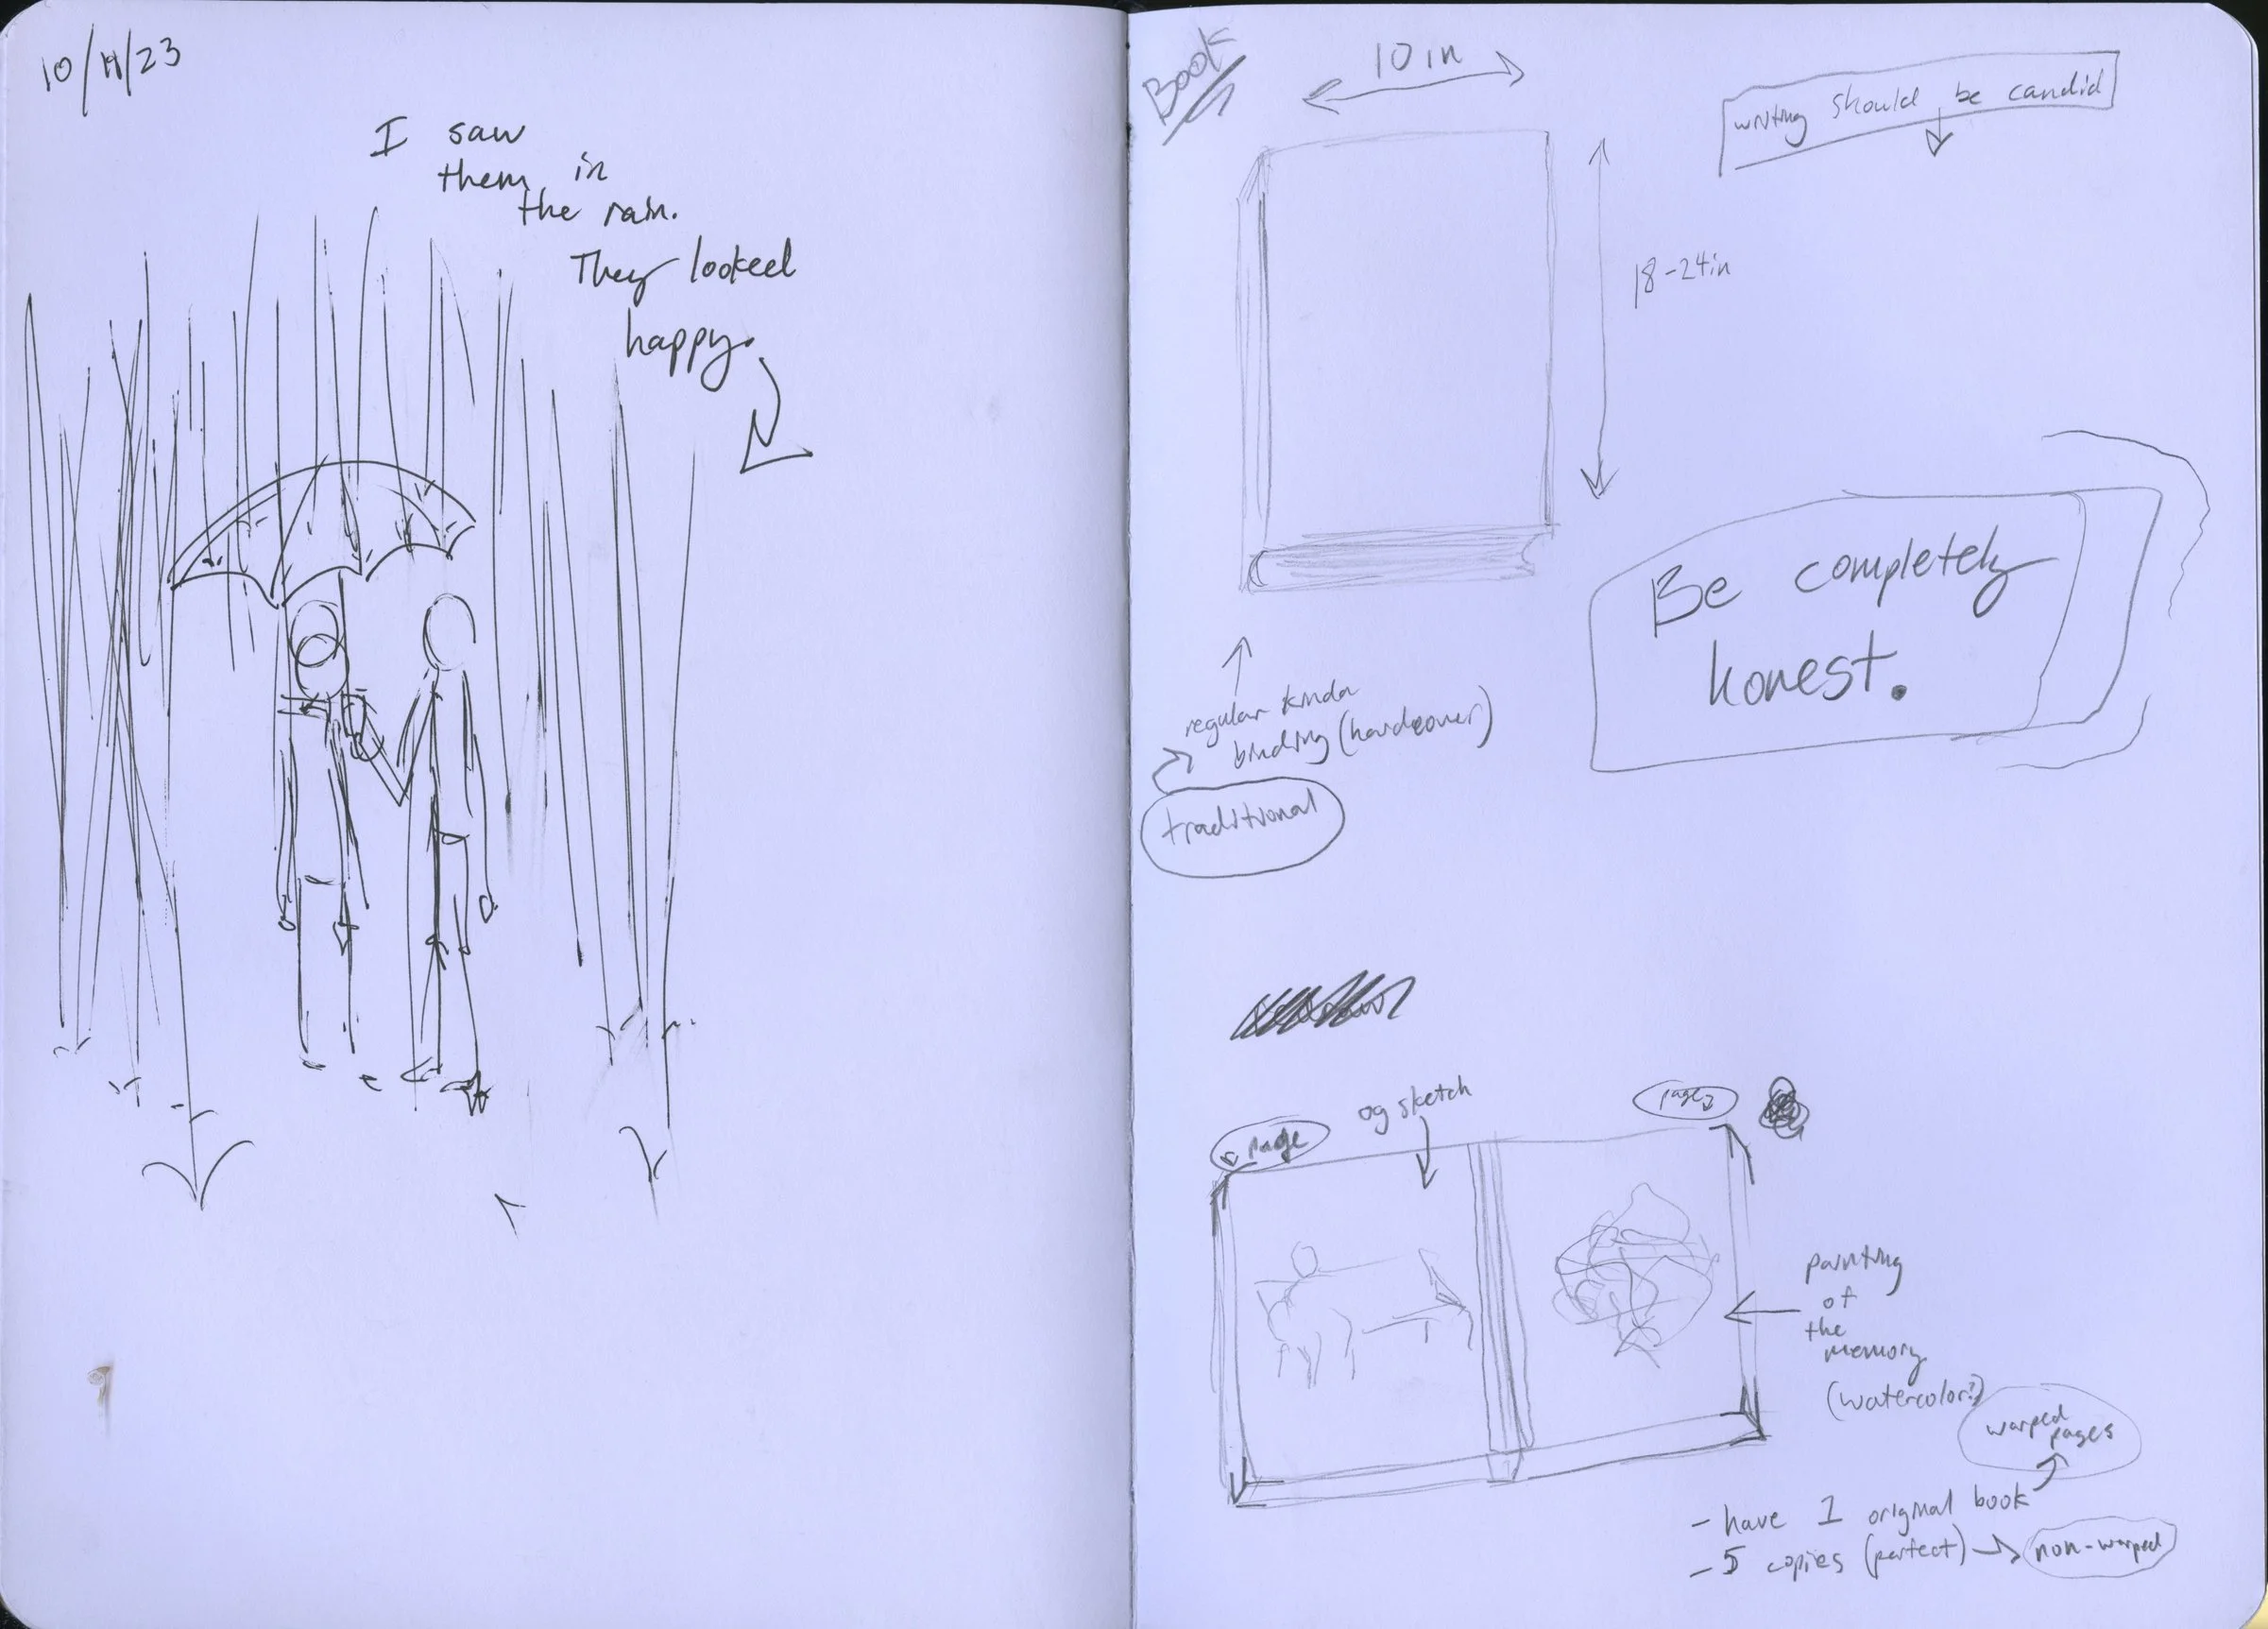 10/11/23
I saw
them in
the rain.
They looked
happy.
Book
10 in
writing should be candid
18-24in
Be completely
honest.
regular kinda
binding (hardcover)
traditional
og sketch
page
page
painting
of
the
memory
(watercolor?)
warped
pages
- have 1 original book
- 5 copies (perfect) → non-warped